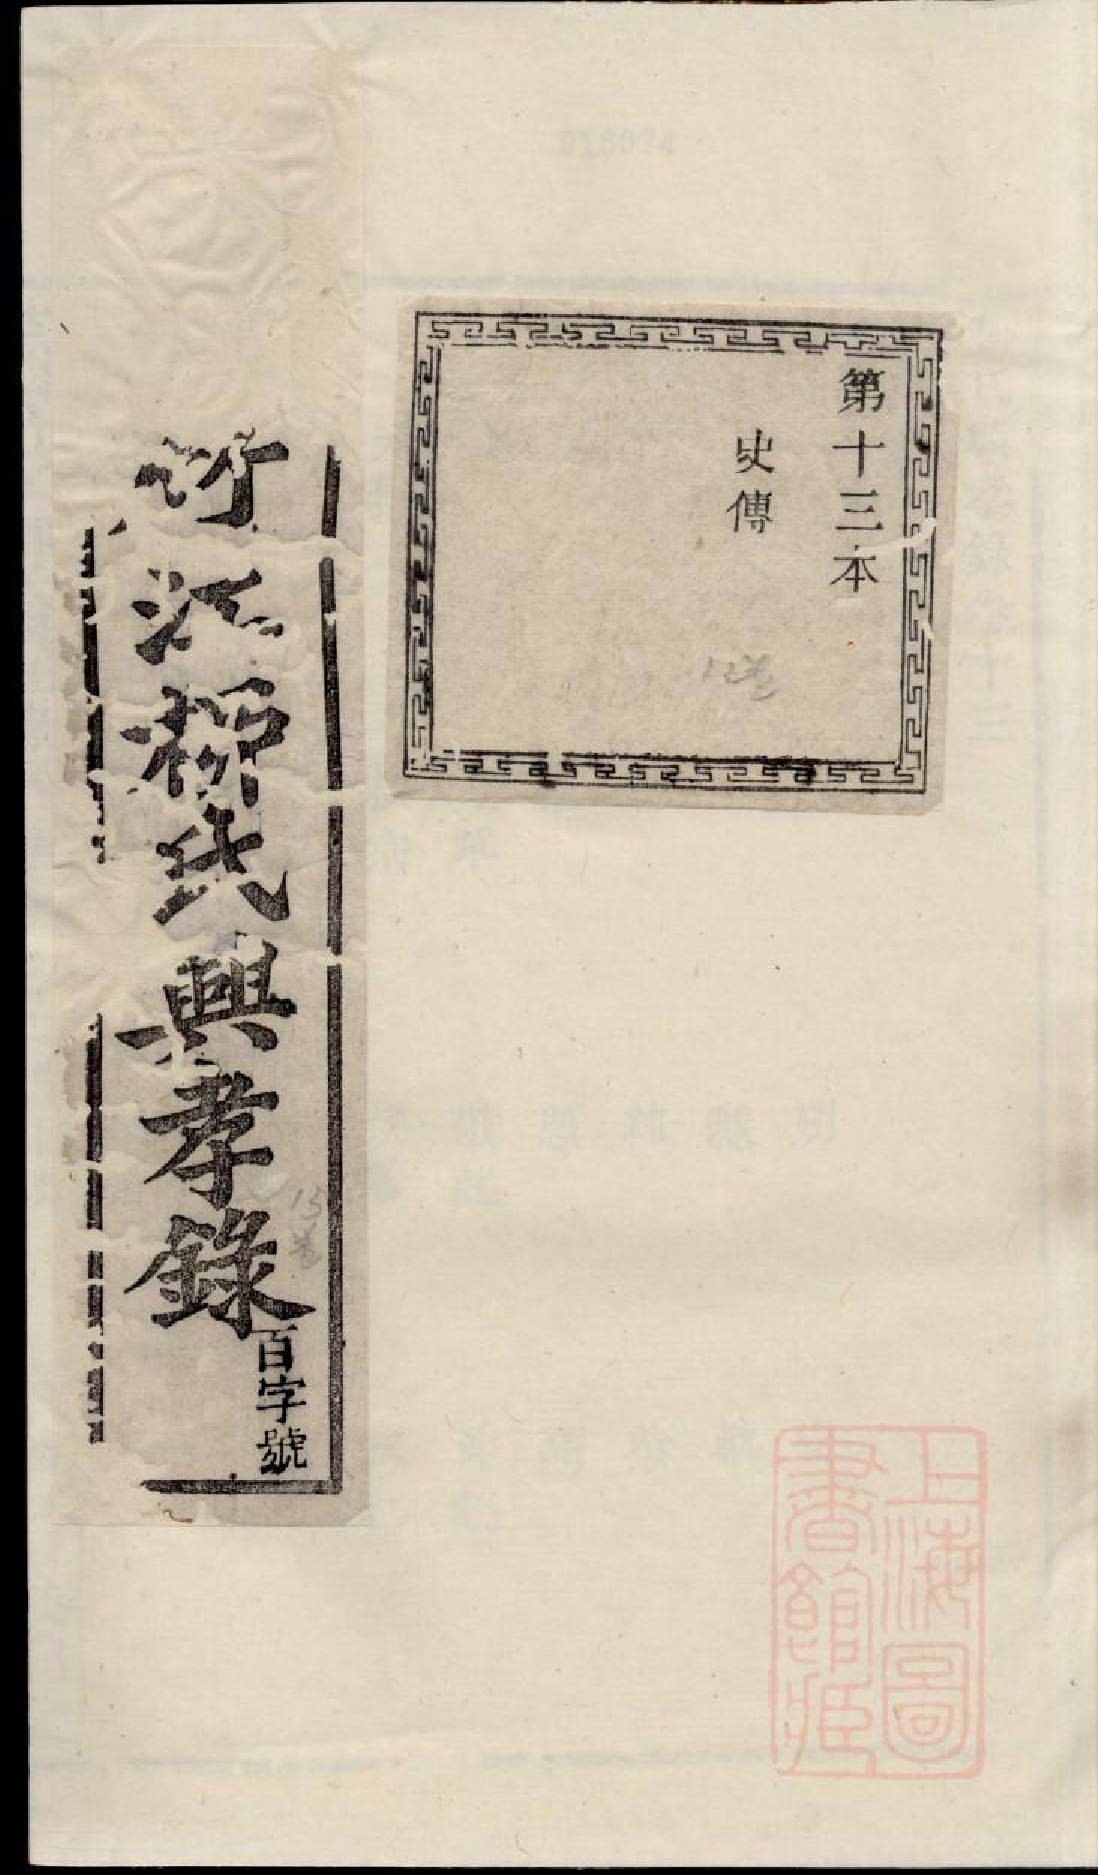 第十三本
史傳
13卷
江柳氏興孝錄
百字號
13卷
上海圖
書館藏